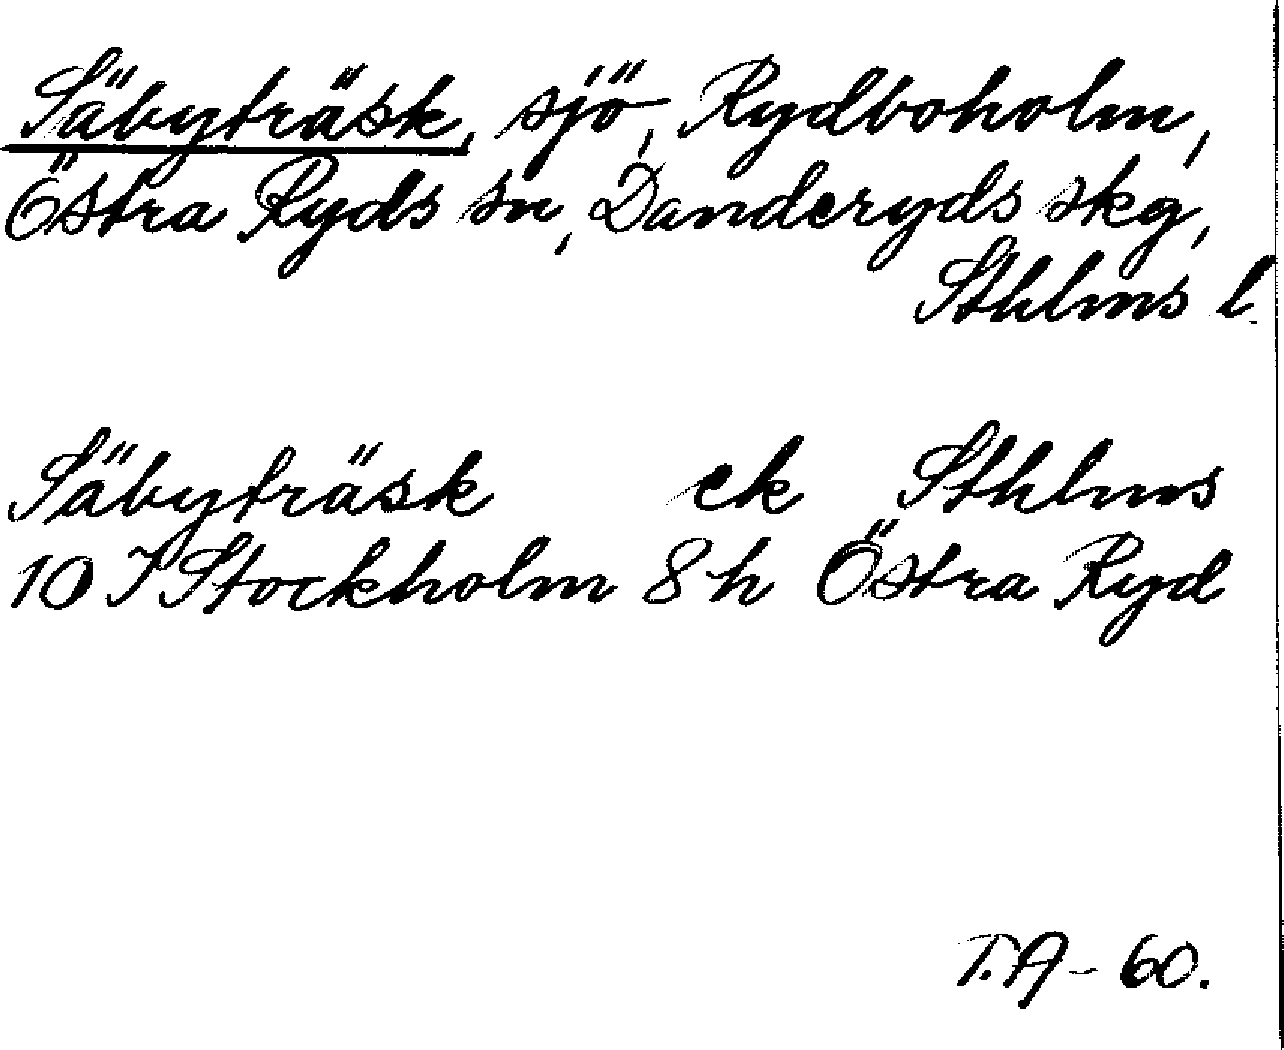 Säbyträsk, sjö, Rydboholm,
Östra Ryds sn, Danderyds skg,
Sthlms l.
Säbyträsk ek Sthlms
10 I Stockholm 8 h Östra Ryd
T.A - 60.